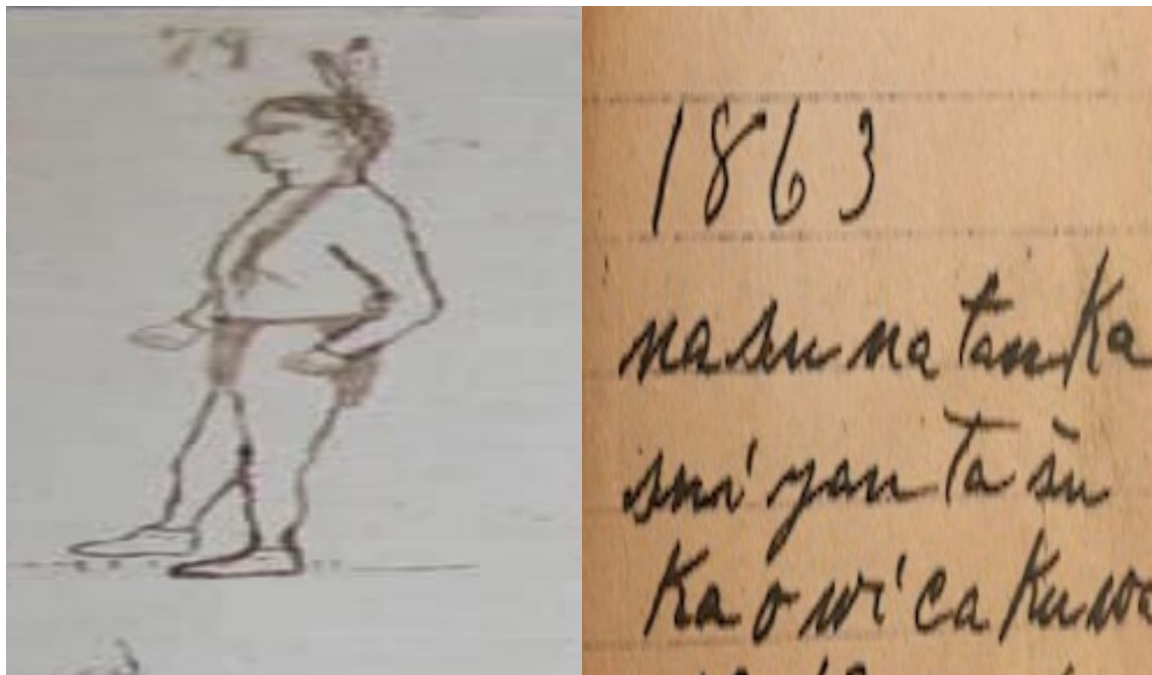 79
1863
nasu na tan Ka
sni yan ta šu
Ka o wi ca Ku wa